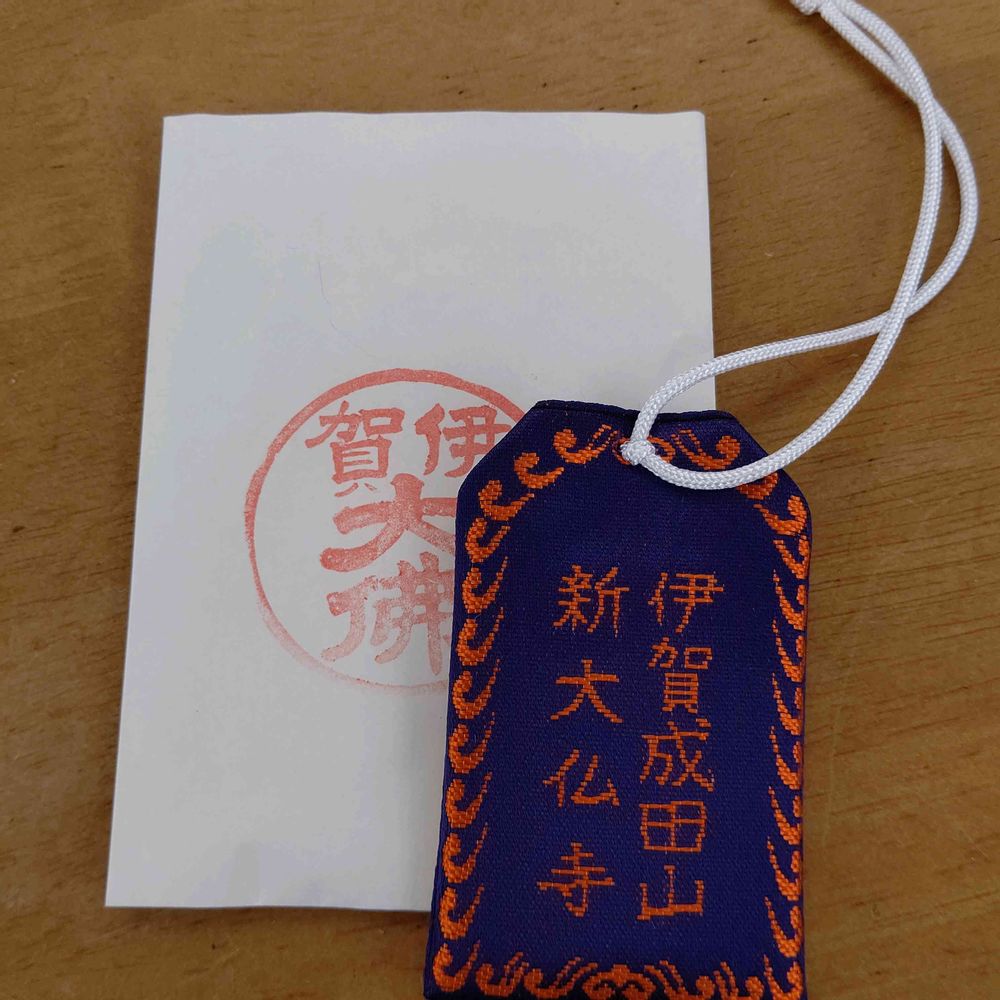 伊賀
大
佛
伊賀成田山
新大仏寺